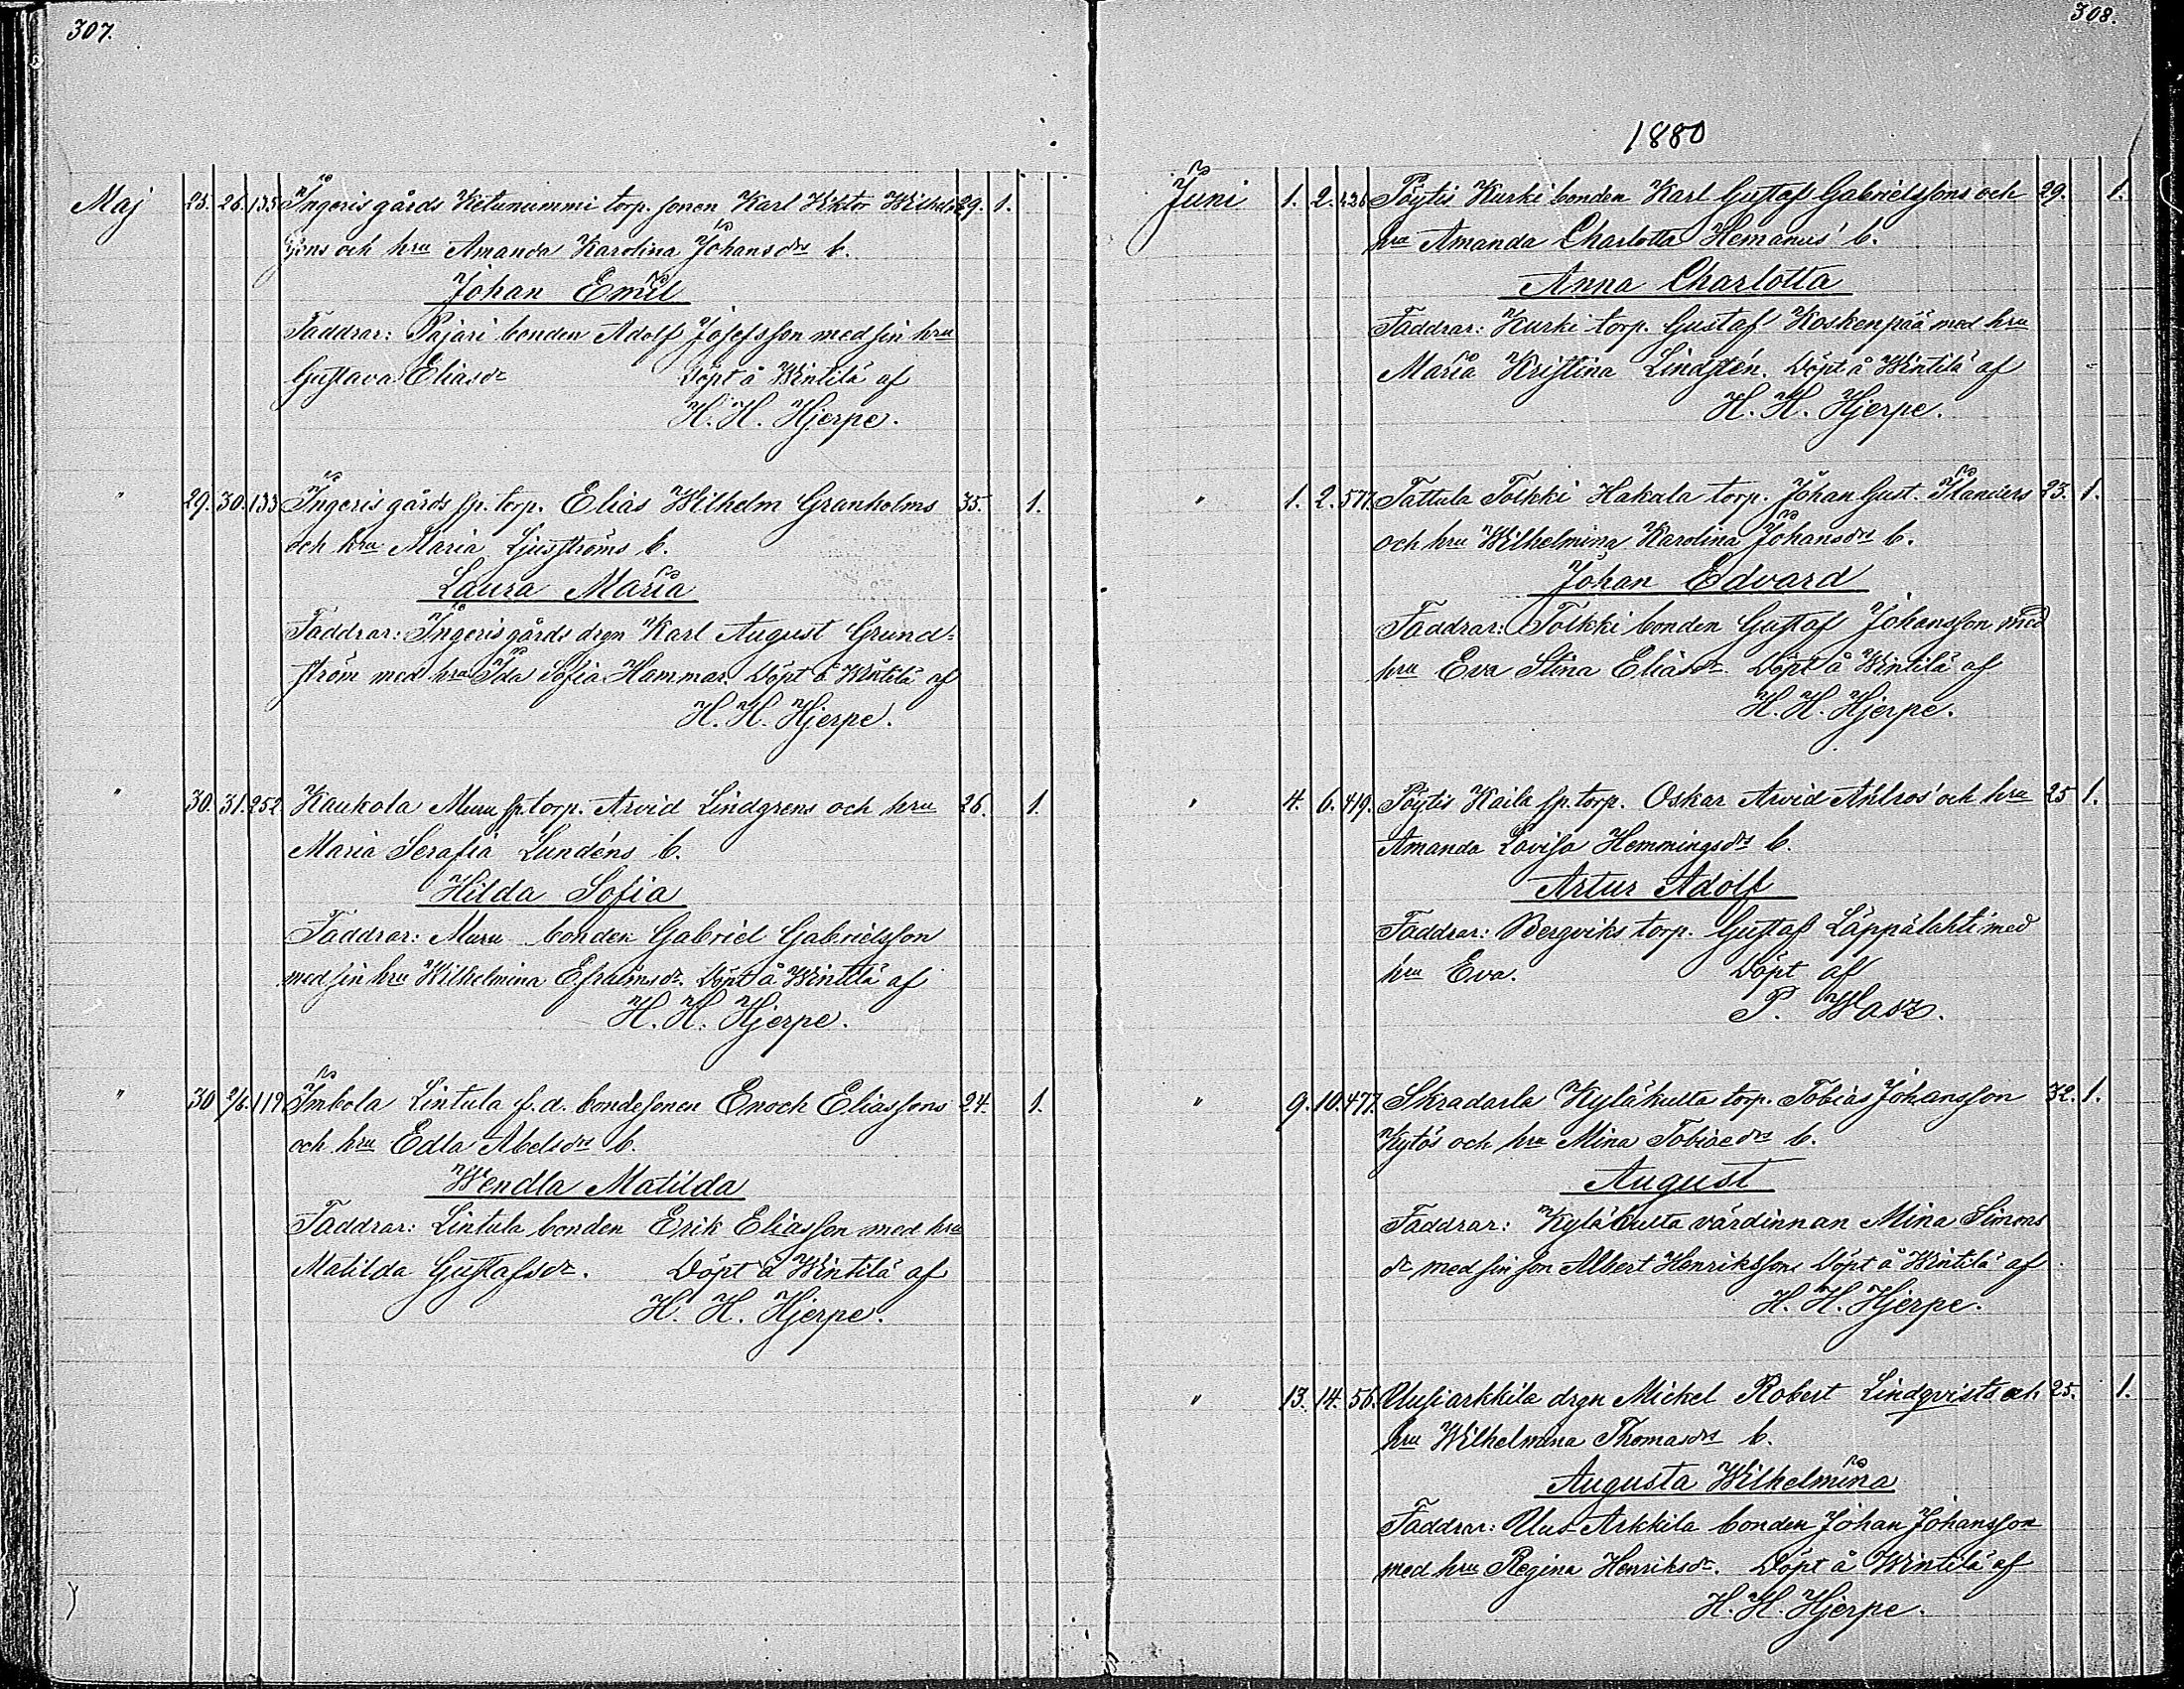 307.
Maj 25. 26. 135 Ingeris gårds Ketunummi torp. sonen Karl Viktor Wilhelms 29. 1.
sons och hru Amanda Karolina Johansdrs b.
Johan Emil
Faddrar: Pajari bonden Adolf Josefsson med sin hru
Gustava Eliasdr Döpt å Wintilä af
H. H. Hjerpe.
" 29. 30. 133 Ingeris gårds sp. torp. Elias Wilhelm Granholms 35. 1.
och hru Maria Ljusströms b.
Laura Maria
Faddrar: Ingeris gårds drgn Karl August Grund-
ström med hru Ida Sofia Hammar. Döpt å Wintilä af
H. H. Hjerpe.
" 30. 31. 252. Kaukola Muru sp. torp. Arvid Lindgrens och hru 26. 1.
Maria Serafia Lundéns b.
Hilda Sofia
Faddrar: Muru bonden Gabriel Gabrielsson
med sin hru Wilhelmina Efraimsdr. Döpt å Wintilä af
H. H. Hjerpe.
" 30 2/6. 119. Imbola Lintula f.d. bondesonen Enoch Eliassons 24. 1.
och hru Edla Abelsdrs b.
Wendla Matilda
Faddrar: Lintula bonden Erik Eliasson med hru
Matilda Gustafsdr. Döpt å Wintilä af
H. H. Hjerpe.
308.
1880
Juni 1. 2. 436 Pöytis Kurki bonden Karl Gustaf Gabrielssons och 29. 1.
hru Amanda Charlotta Hemanus' b.
Anna Charlotta
Faddrar: Kurki torp. Gustaf Koskenpää med hru
Maria Kristina Lindstén. Döpt å Wintilä af
H. H. Hjerpe.
" 1. 2. 577. Tattula Tolkki Hakala torp. Johan Gust. Ilanders 23. 1.
och hru Wilhelmina Karolina Johansdrs b.
Johan Edvard
Faddrar: Tolkki bonden Gustaf Johansson med
hru Eva Stina Eliasdr. Döpt å Wintilä af
H. H. Hjerpe.
" 4. 6. 419. Pöytis Kaila sp. torp. Oskar Arvid Ahlros' och hru 25 1.
Amanda Lovisa Hemmingsdrs b.
Artur Adolf
Faddrar: Bergviks torp. Gustaf Läppälahti med
hru Eva. Döpt af
P. Wasz.
" 9. 10. 477. Skradarla Kyläkulta torp. Tobias Johansson 32. 1.
Kytös och hru Mina Tobiaedrs b.
August
Faddrar: Kyläkulta värdinnan Mina Simons
dr med sin son Albert Henriksson. Döpt å Wintilä af
H. H. Hjerpe.
" 13. 14. 56. Uusiarkkila drgn Mickel Robert Lindqvists och 25. 1.
hru Wilhelmina Thomasdrs b.
Augusta Wilhelmina
Faddrar: Uus-Arkkila bonden Johan Johansson
med hru Regina Henriksdr. Döpt å Wintilä af
H. H. Hjerpe.